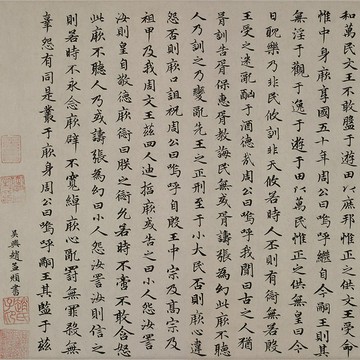 和萬民文王不敢盤于遊田以庶邦惟正之供文王受命
惟中身厥享國五十年周公曰嗚呼繼自今嗣王則其
無淫于觀于逸于遊于田以萬民惟正之供無皇曰今
日耽樂乃非民攸訓非天攸若時人丕則有愆無若殷
王受之迷亂酗于酒德哉周公曰嗚呼我聞曰古之人猶
胥訓告胥保惠胥教誨民無或胥譸張為幻此厥不聽
人乃訓之乃變亂先王之正刑至于小大民否則厥心違
怨否則厥口詛祝周公曰嗚呼自殷王中宗及高宗及
祖甲及我周文王茲四人迪哲厥或告之曰小人怨汝詈
汝則皇自敬德厥愆曰朕之愆允若時不啻不敢含怒
此厥不聽人乃或譸張為幻曰小人怨汝詈汝則信之
則若時不永念厥辟不寬綽厥心亂罰無罪殺無
辜怨有同是叢于厥身周公曰嗚呼嗣王其監于茲
吳興趙孟頫書